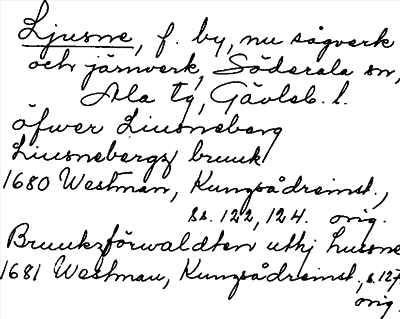 Ljusne, f. by, nu sågverk
och järnverk, Söderala sn,
Ala tg, Gävleb. l.
öfwer Liusneberg
Liusnebergz bruuk
1680 Westman, Kungsådreinst.,
ss. 122, 124. orig.
Bruukzförwaldten uthj Liusne
1681 Westman, Kungsådreinst., s. 127
orig.